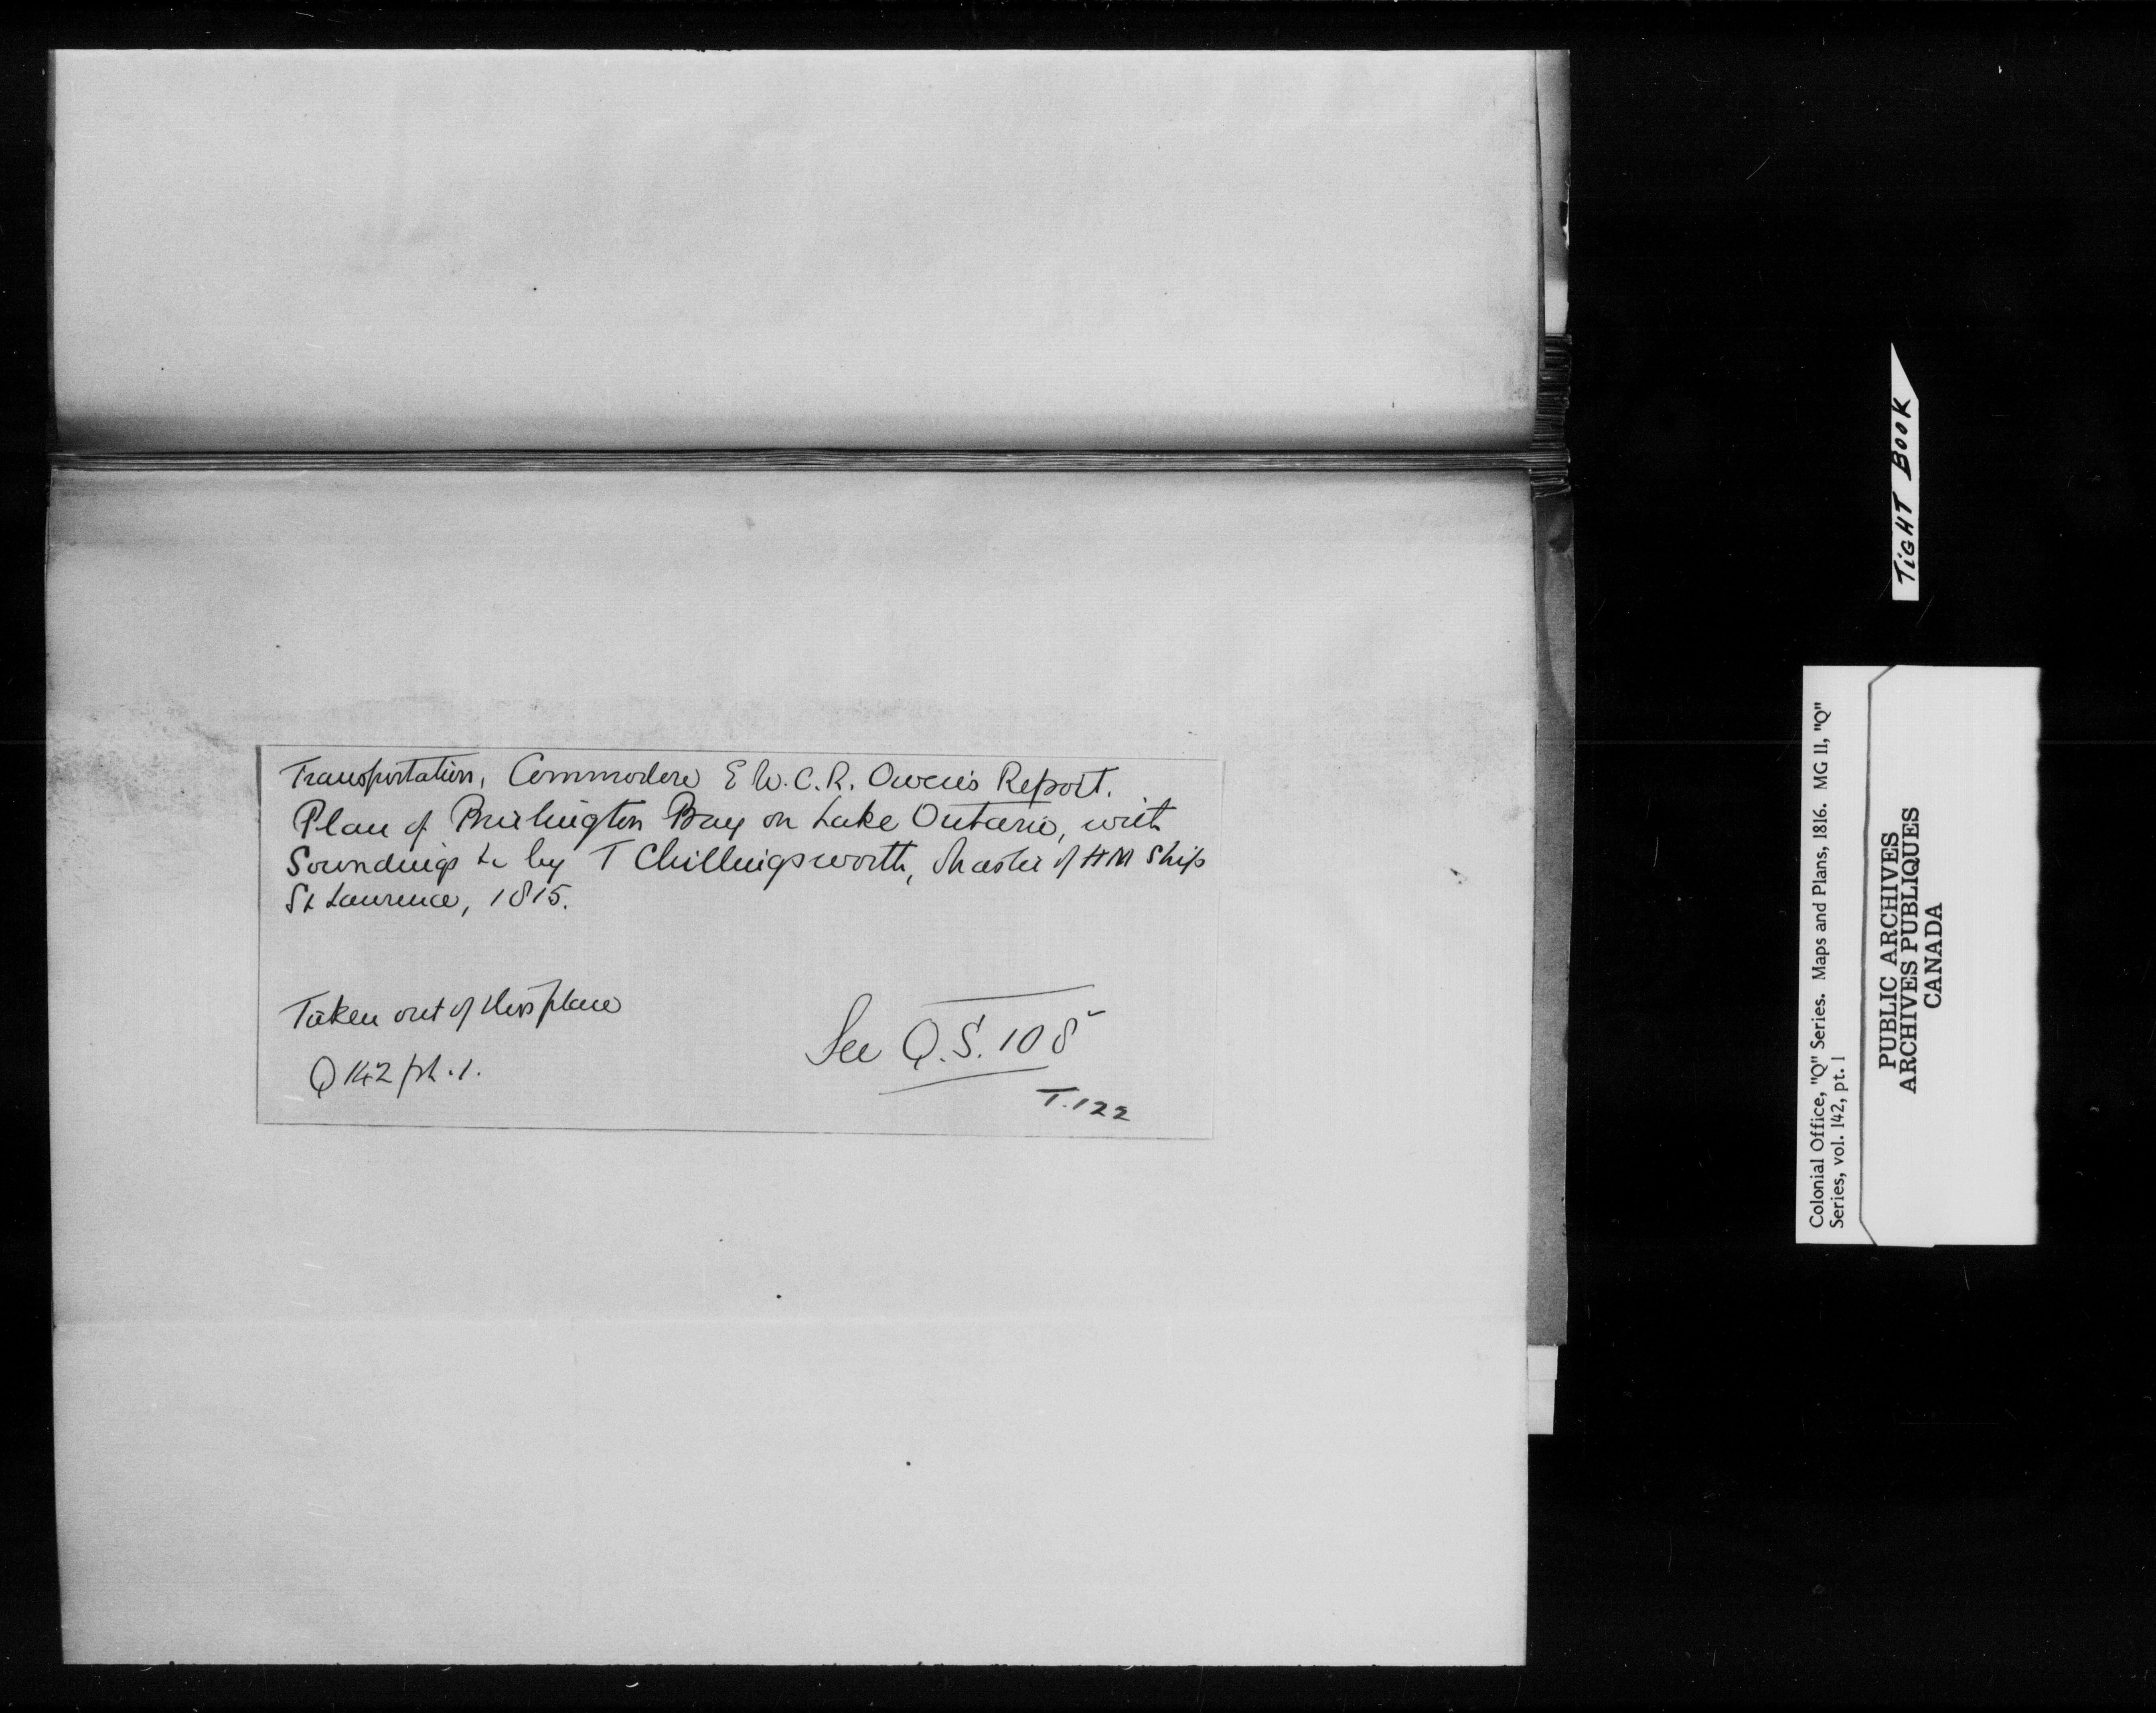 Transportation, Commodore E W. C. R. Owen's Report.
Plan of Burlington Bay on Lake Ontario, with
Soundings &c by T Chillingsworth, Master of HM Ship
St Laurence, 1815.
Taken out of this place
Q 142 pt. 1.
See Q.S. 108
T. 122
TIGHT BOOK
Colonial Office, "Q" Series. Maps and Plans, 1816. MG 11, "Q"
Series, vol. 142, pt. 1
PUBLIC ARCHIVES
ARCHIVES PUBLIQUES
CANADA